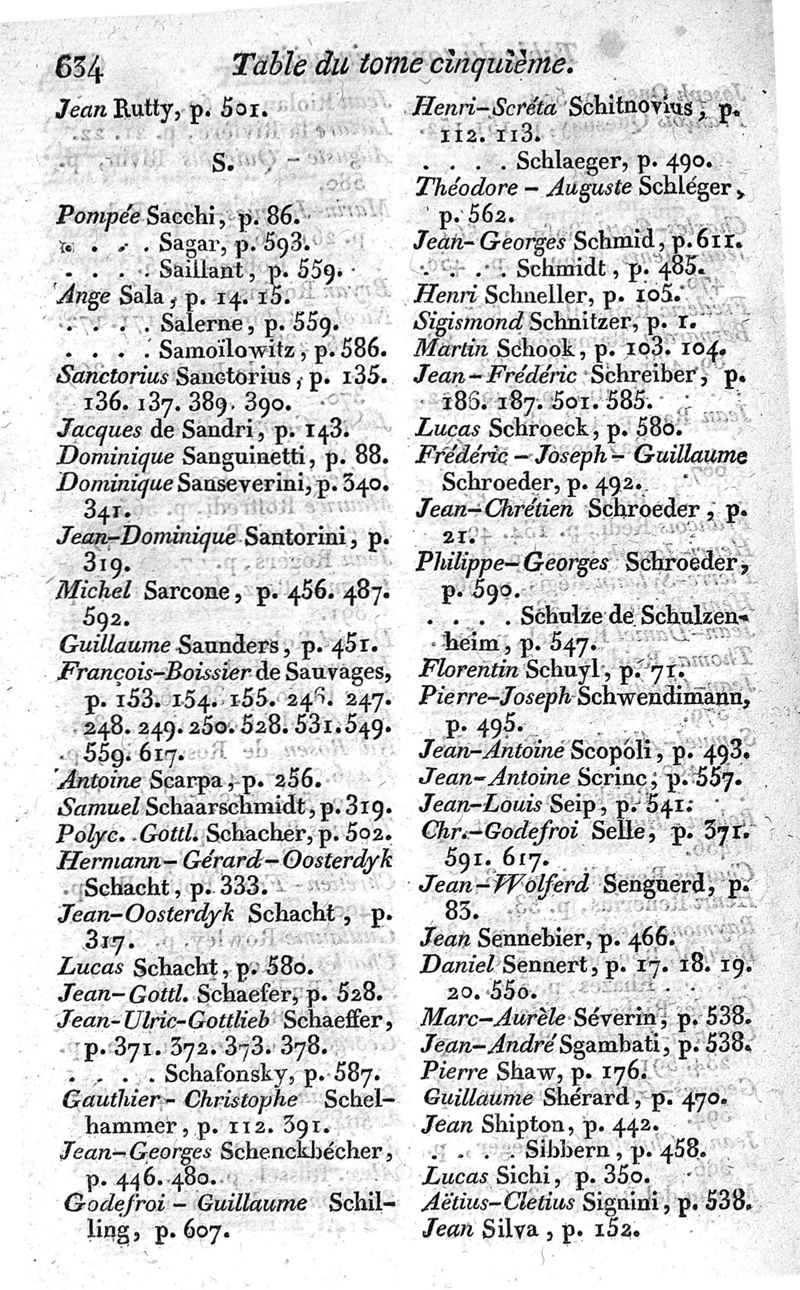 634 Table du tome cinquième.
Jean Rutty, p. 501.
S.
Pompée Sacchi, p. 86.
. . . Sagar, p. 593.
. . . . Saillant, p. 559.
Ange Sala, p. 14. 15.
. . . . Salerne, p. 559.
. . . . Samoïlowitz, p. 586.
Sanctorius Sanctorius, p. 135.
136. 137. 389. 390.
Jacques de Sandri, p. 143.
Dominique Sanguinetti, p. 88.
Dominique Sanseverini, p. 340.
341.
Jean-Dominique Santorini, p.
319.
Michel Sarcone, p. 456. 487.
592.
Guillaume Saunders, p. 451.
François-Boissier de Sauvages,
p. 153. 154. 155. 246. 247.
248. 249. 250. 528. 531. 549.
559. 617.
Antoine Scarpa, p. 256.
Samuel Schaarschmidt, p. 319.
Polyc. Gottl. Schacher, p. 502.
Hermann-Gérard-Oosterdyk
Schacht, p. 333.
Jean-Oosterdyk Schacht, p.
317.
Lucas Schacht, p. 580.
Jean-Gottl. Schaefer, p. 528.
Jean-Ulric-Gottlieb Schaeffer,
p. 371. 372. 373. 378.
. . . . Schafonsky, p. 587.
Gauthier-Christophe Schel-
hammer, p. 112. 391.
Jean-Georges Schenckbécher,
p. 446. 480.
Godefroi-Guillaume Schil-
ling, p. 607.
Henri-Scréta Schitnovius, p.
112. 113.
. . . . Schlaeger, p. 490.
Théodore-Auguste Schléger,
p. 562.
Jean-Georges Schmid, p. 611.
. . . . Schmidt, p. 485.
Henri Schneller, p. 105.
Sigismond Schnitzer, p. 1.
Martin Schook, p. 103. 104.
Jean-Frédéric Schreiber, p.
186. 187. 501. 585.
Lucas Schroeck, p. 580.
Frédéric-Joseph-Guillaume
Schroeder, p. 492.
Jean-Chrétien Schroeder, p.
21.
Philippe-Georges Schroeder,
p. 590.
. . . . Schulze de Schulzen-
heim, p. 547.
Florentin Schuyl, p. 71.
Pierre-Joseph Schwendimann,
p. 495.
Jean-Antoine Scopoli, p. 493.
Jean-Antoine Scrinc, p. 557.
Jean-Louis Seip, p. 541.
Chr.-Godefroi Selle, p. 371.
591. 617.
Jean-Wolferd Senguerd, p.
83.
Jean Sennebier, p. 466.
Daniel Sennert, p. 17. 18. 19.
20. 550.
Marc-Aurèle Séverin, p. 538.
Jean-André Sgambati, p. 538.
Pierre Shaw, p. 176.
Guillaume Shérard, p. 470.
Jean Shipton, p. 442.
. . . . Sibbern, p. 458.
Lucas Sichi, p. 350.
Aëtius-Cletius Signini, p. 538.
Jean Silva, p. 152.